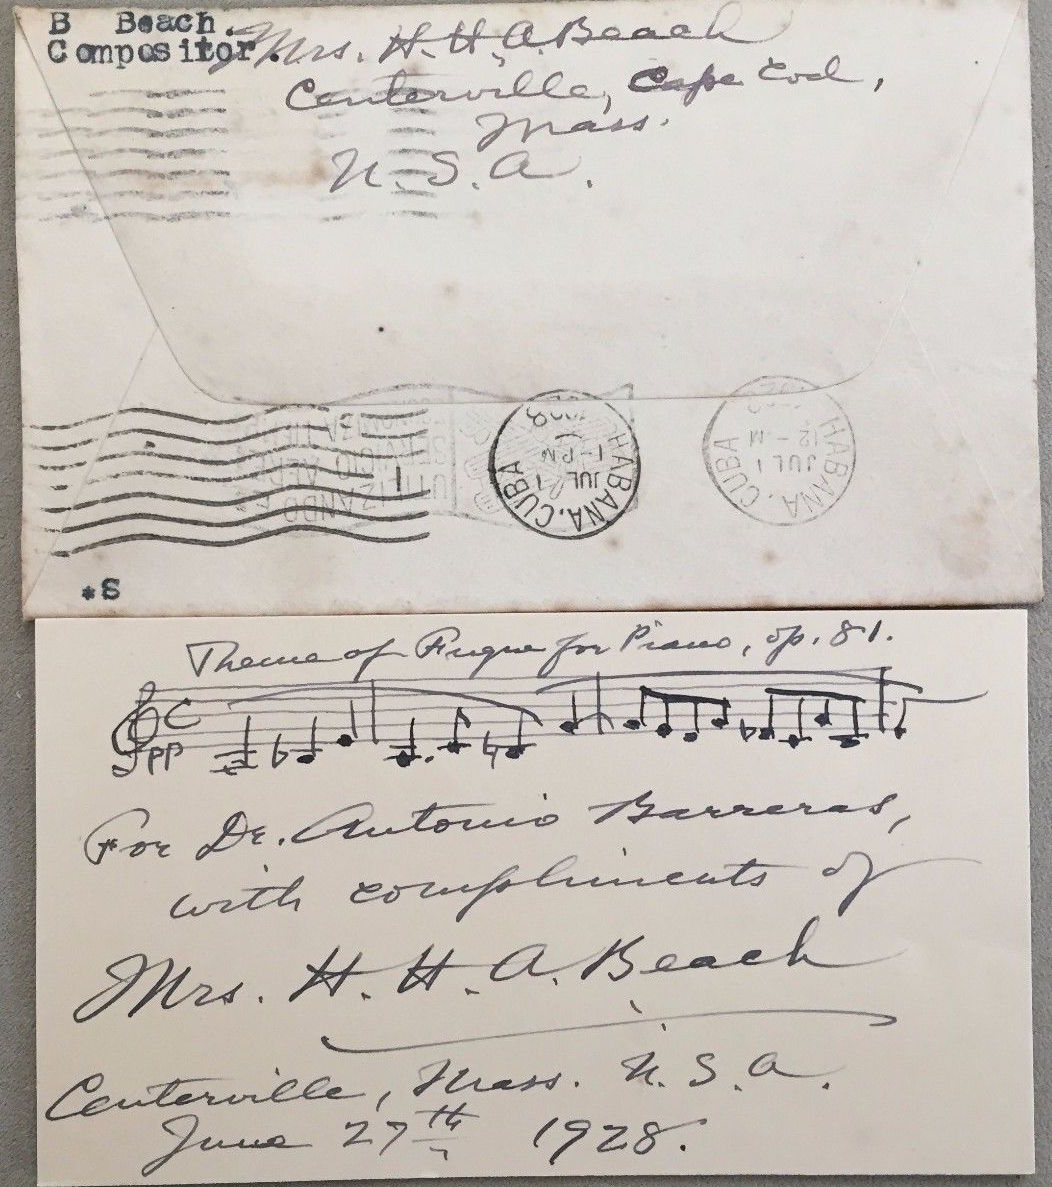 B Beach.
Compositor.
Mrs. H. H. A. Beach
Centerville, Cape Cod,
Mass.
U. S. A.
UTILIZANDO
SERVICIO AEREO
HABANA, CUBA
JUL 1
1 - PM
1928
HABANA, CUBA
JUL 1
12 - M
1928
*S
Theme of Fugue for Piano, op. 81.
C
pp
For Dr. Antonio Barreras,
with compliments of
Mrs. H. H. A. Beach
Centerville, Mass. U. S. A.
June 27th 1928.